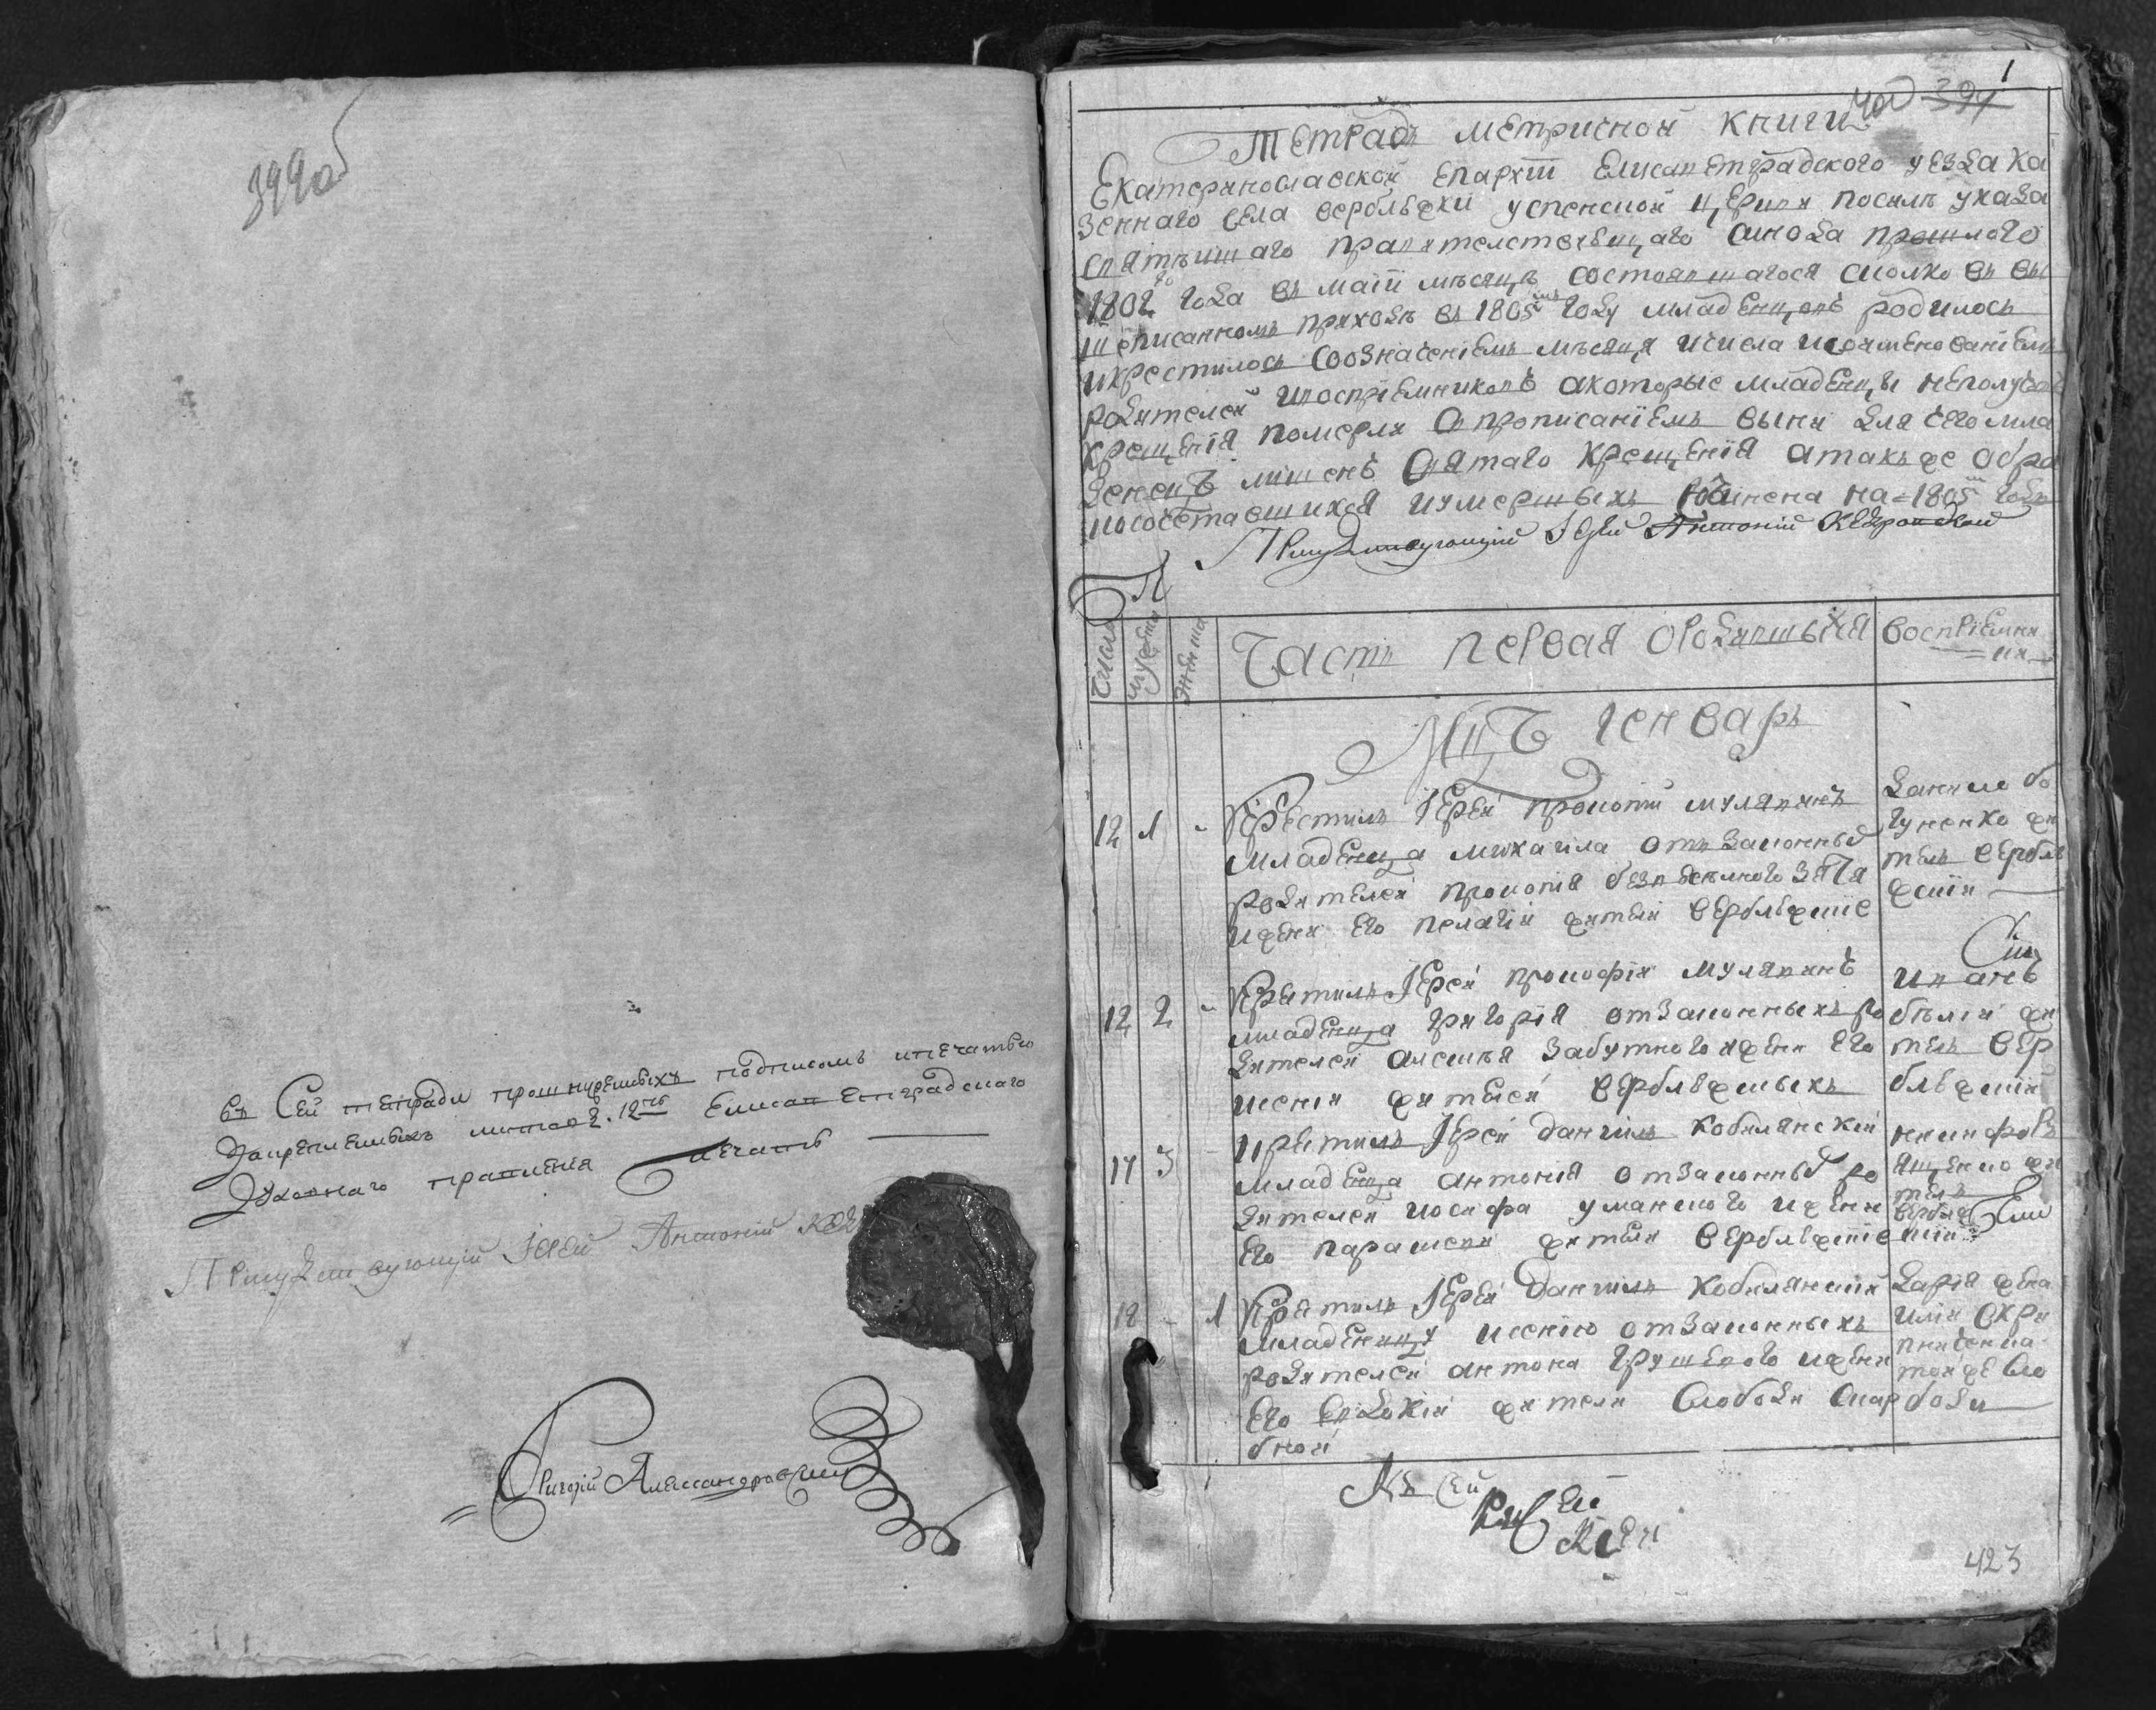 399об
Въ сей тетради прошнуренныхъ подписомъ ипечатью
закрепленныхъ листов 12ть Елисаветградскаго
Духовнаго правленія печать
Присудствующій Іерей Антоній
Григорій Александровскій
1
400 394
Тетрадь метрисной книги
Екатеринославской епархіи Елисаветградского уезда ка
зеннаго села вербльжки успенской церкви посиль указа
святѣишаго правителствующаго синода прошлого
1802го года въ маіи мѣсяцѣ состоявшагося сколко въ вы
шеписанномъ приходѣ въ 1805мъ году младенцовъ родилось
икрестилось сообначеніемъ мѣсяця ичисла исъимянованіемъ
родителей ивоспріемниковъ акоторые младенцы неполуча
крещенія померли спрописаніемъ вины для чего мла
денецъ лишенъ святаго крещенія атакъже обра
косочетавшихся иумершыхъ учинена на 1805й годъ
Присудствующій Іерей Антоній
Числа
мужеска
женска
Часть первая ородившыхся
воспріемни
ки
Мцъ генварь
12 1
Крестилъ Іерей прокопій мулявинъ
младенца михаила отъзаконныхъ
родителей прокопія
ижени его пелагіи жители верблѣжскіе
данило бо
гуненко жи
тель вербль
жскій
12 2
Крестилъ Іерей прокофій мулявинъ
младенца григорія отзаконныхъ ро
дителей алексѣя забутного ижени его
ксеніи жителей верблѣжскыхъ
иванъ
бѣлій жи
тель вер
блѣжскій
17 3
крестилъ Іерей даніилъ кобилянскій
младенца антонія отзаконныхъ ро
дителей иосифа уманского ижени
его параскеви жители верблѣжскіе
никифоръ
ященко жи
тель
вербле
жскій
18 - 1
Крестилъ Іерей даніилъ кобилянскій
младеницу ксенію отзаконныхъ
родителей антона грушевого ижени
его евдокіи жители слободи скар
бной
дарія жена
илія скри
пниченка
тоиже сло
боди
Къ сей
423